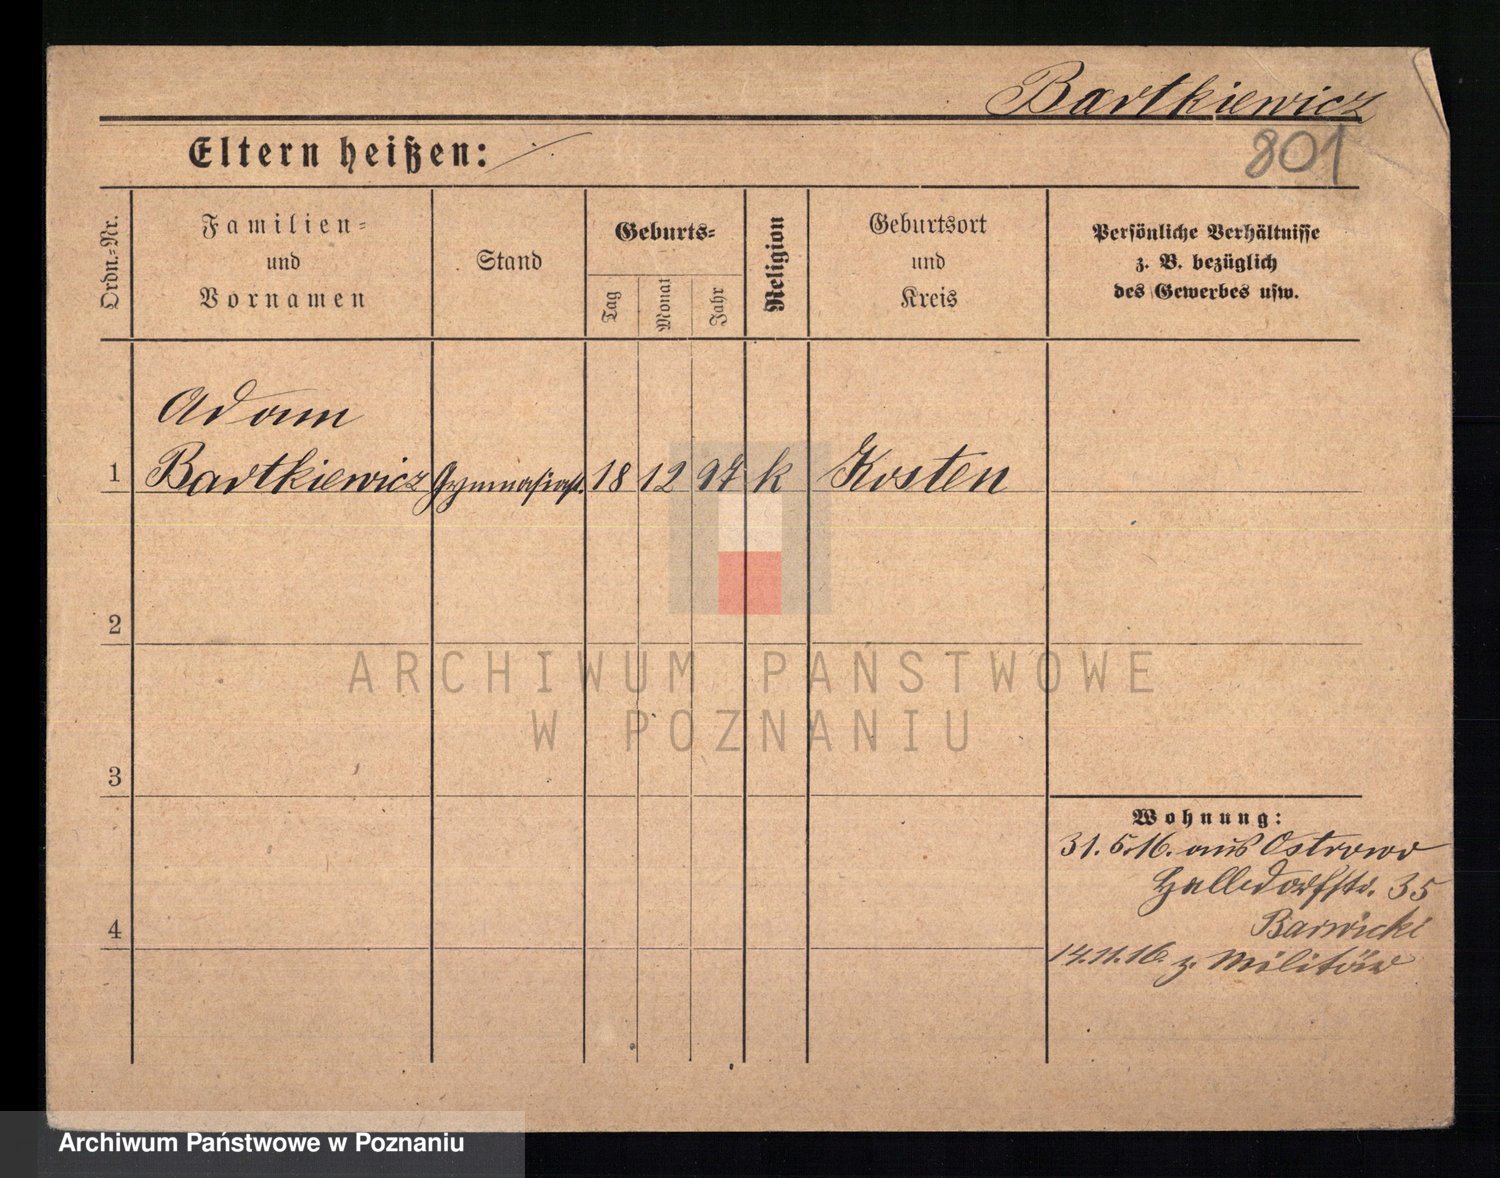 Bartkiewicz
801
Eltern heißen:
Ordn.-Nr.
Familien-
und
Vornamen
Stand
Geburts-
Tag
Monat
Jahr
Religion
Geburtsort
und
Kreis
Persönliche Verhältnisse
z. B. bezüglich
des Gewerbes usw.
Adam
1 Bartkiewicz Gymnasiast. 18 12 97 k Kosten
2
ARCHIWUM PAŃSTWOWE
W POZNANIU
3
Wohnung:
31. 5. 16. aus Ostrowo
35
Barwicki
4
14.11.16. z. Militär
Archiwum Państwowe w Poznaniu